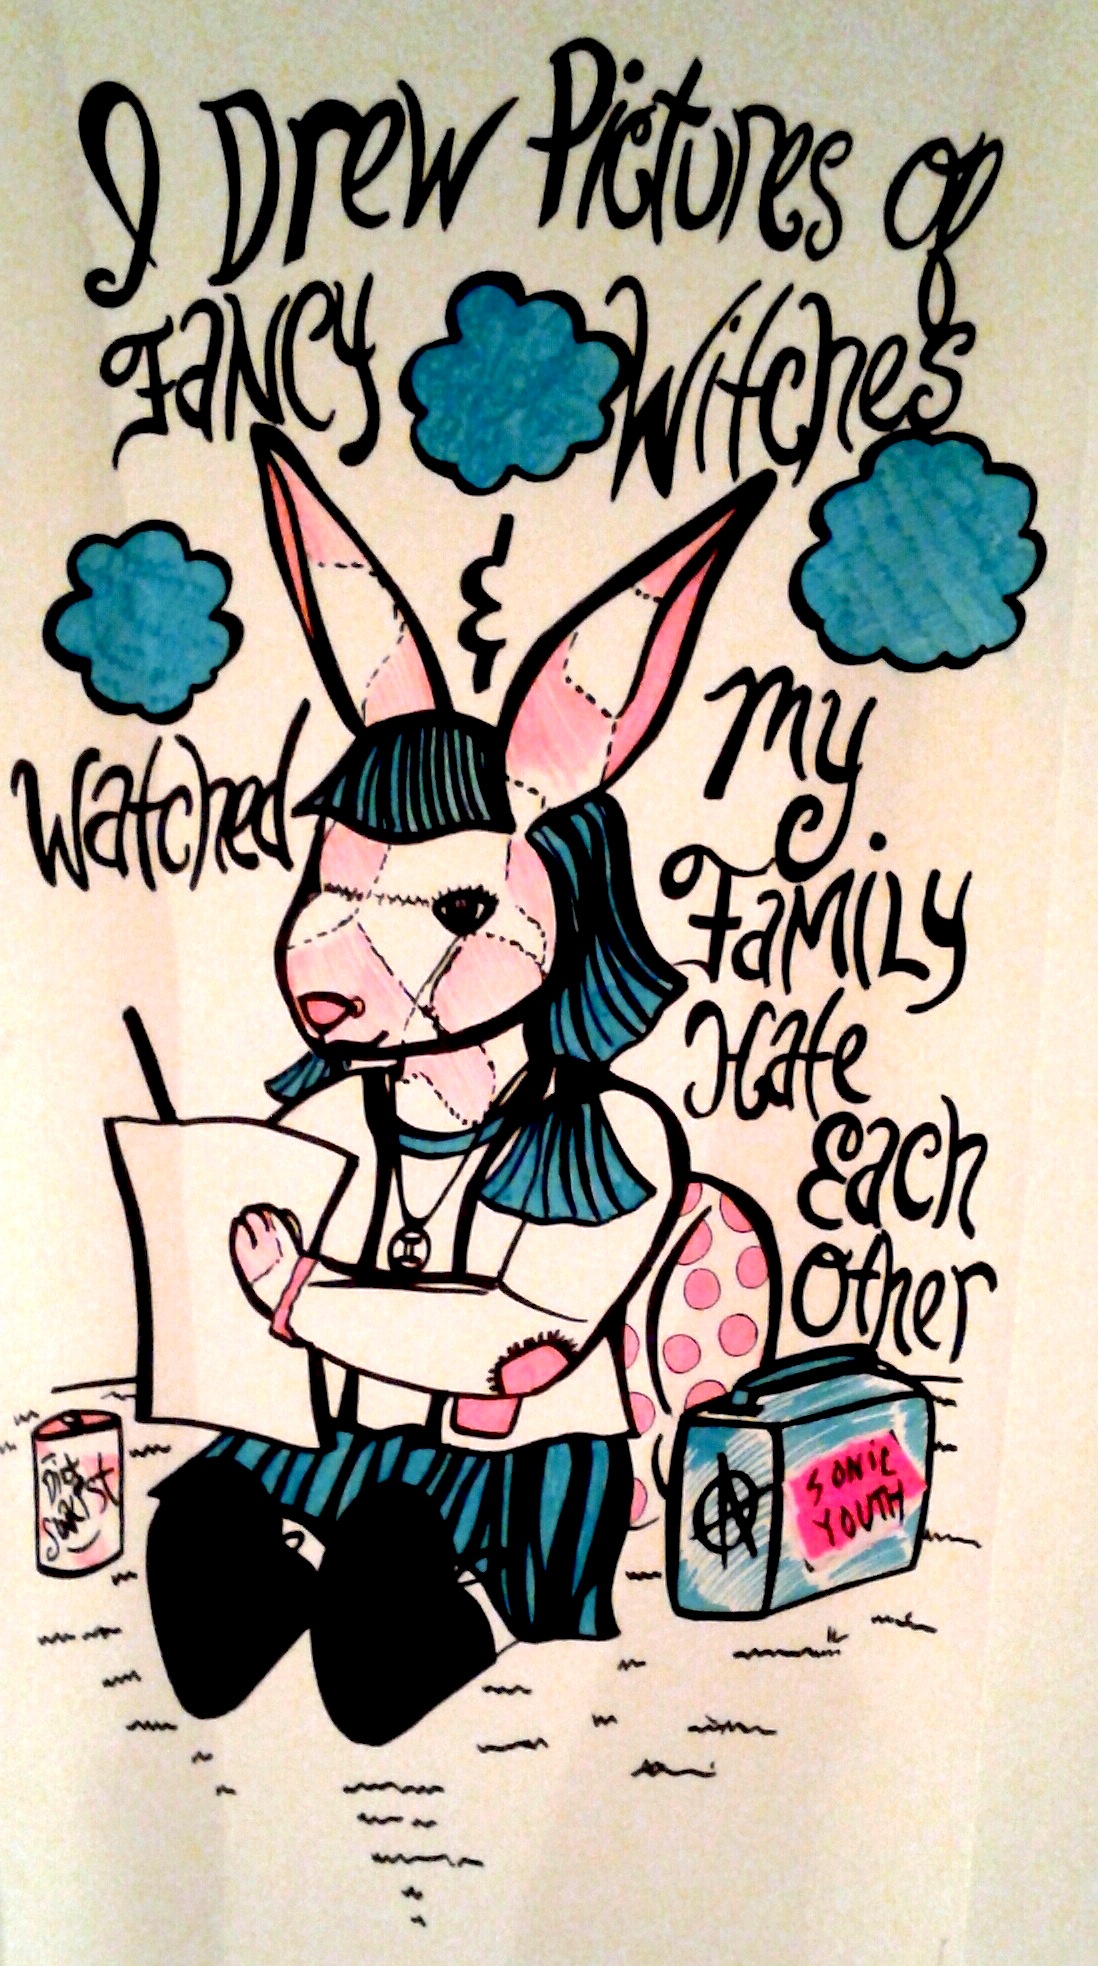 I Drew Pictures of
Fancy Witches
&
Watched
My
Family
Hate
Each
Other
Diet
SONIC
YOUTH